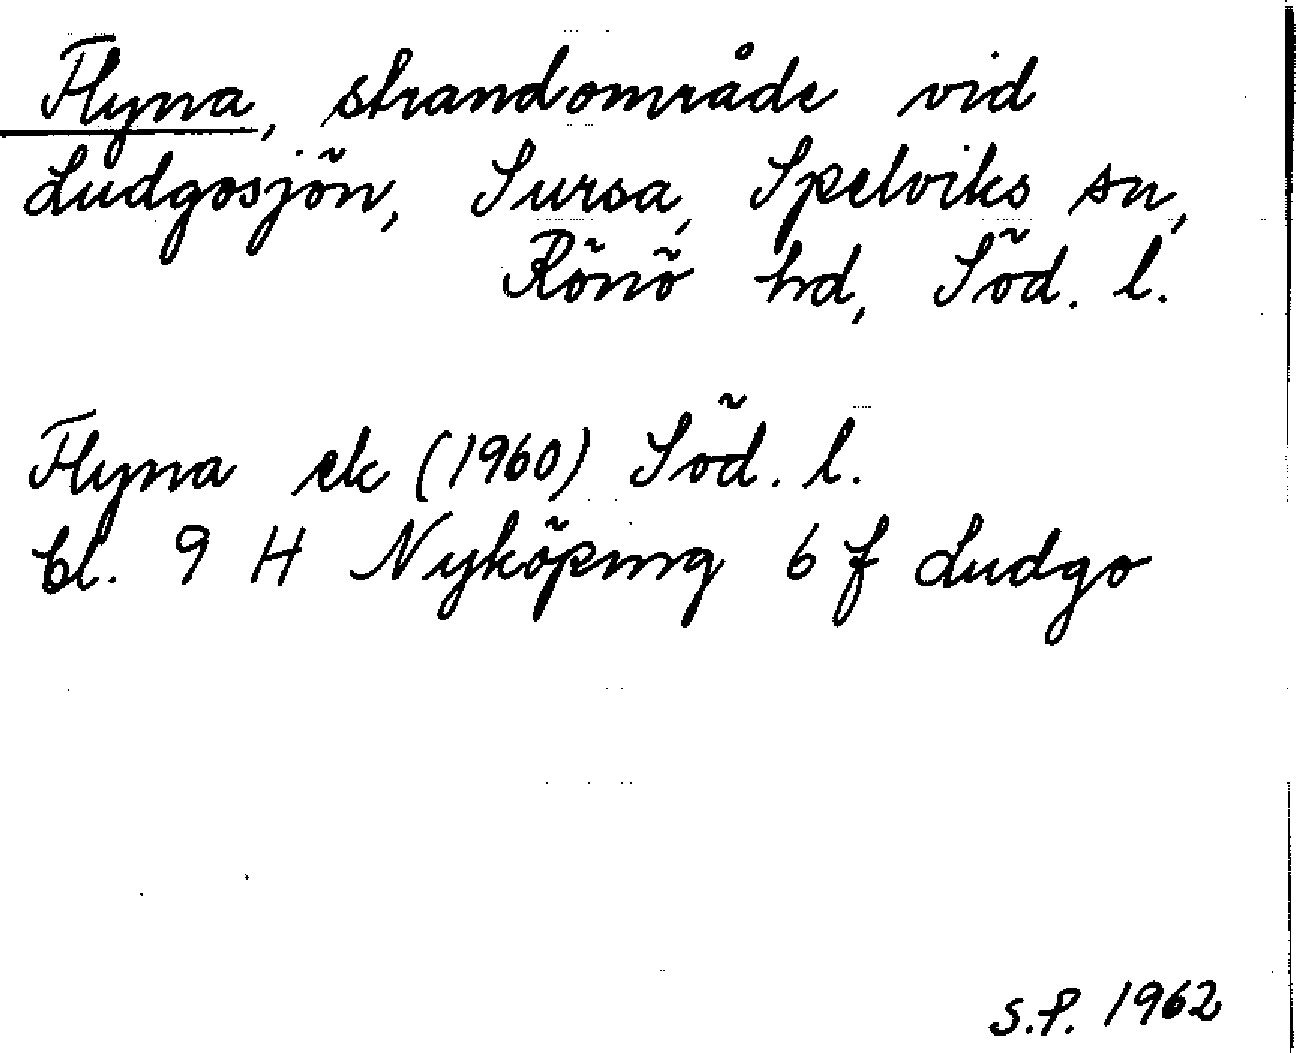 Flyna, strandområde vid
Ludgosjön, Sursa, Spelviks sn,
Rönö hd, Söd. l.
Flyna ek (1960) Söd. l.
bl. 9 H Nyköping 6 f Ludgo
S.P. 1962